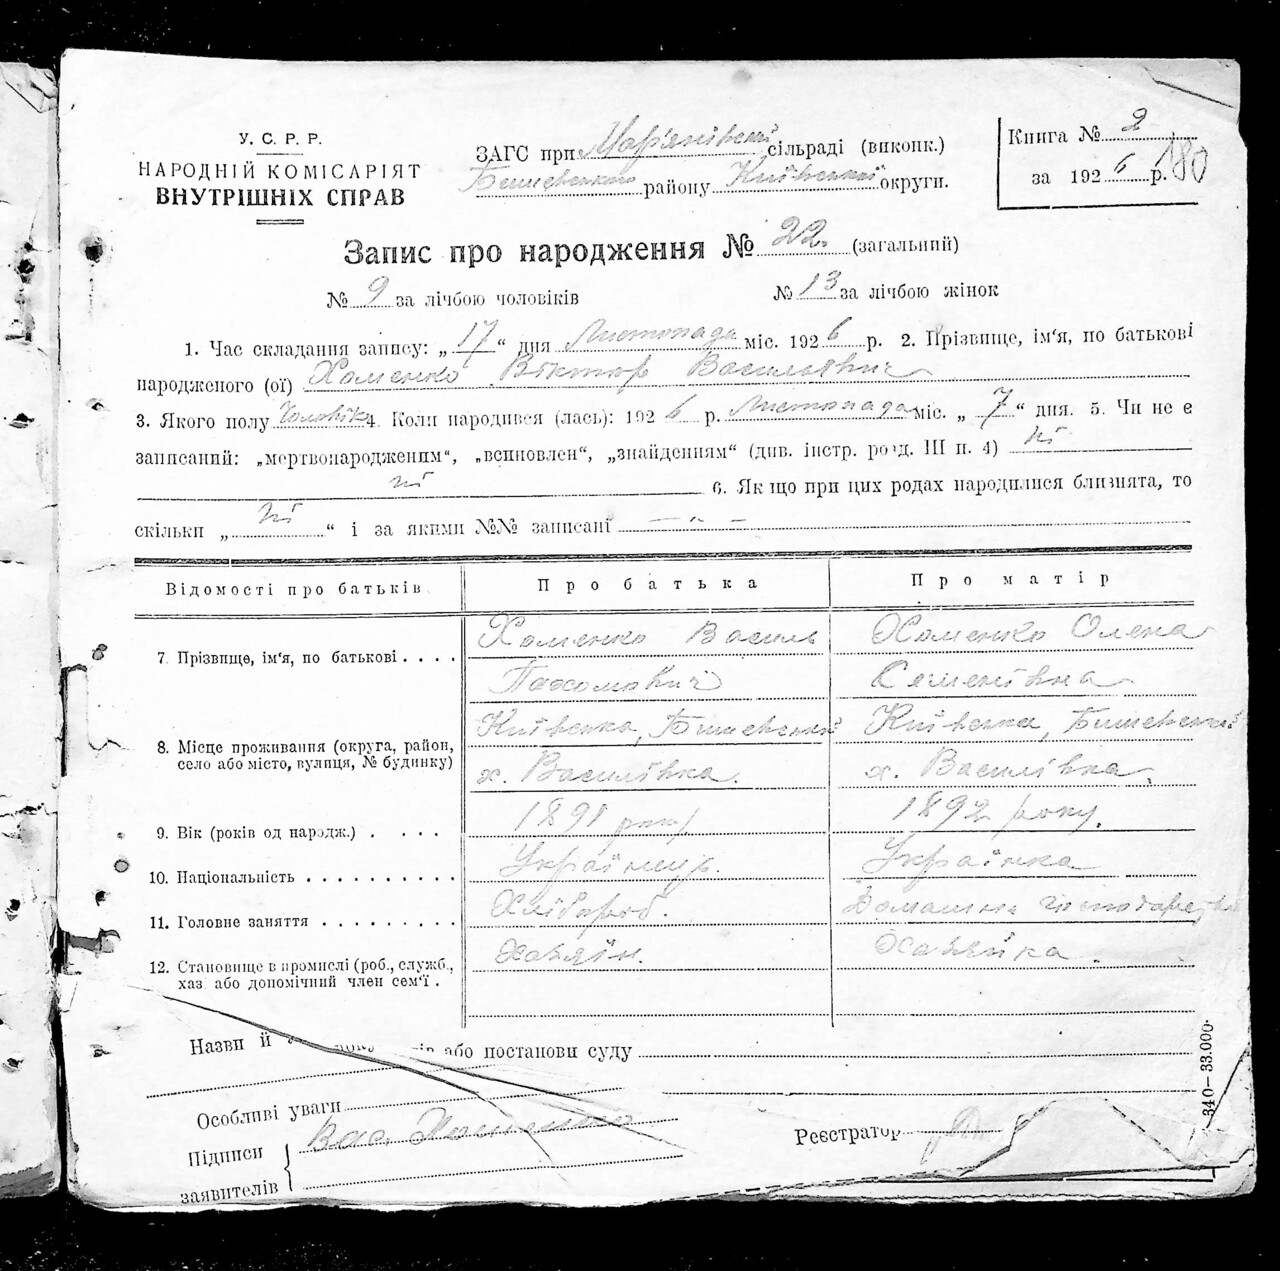 У. С. Р. Р.
НАРОДНІЙ КОМІСАРІЯТ
ВНУТРІШНІХ СПРАВ
ЗАГС при Мар'янівській сільраді (виконк.)
Бишевського району Київської округи.
Книга № 2
за 1926 р. 180
Запис про народження № 22. (загальний)
№ 9 за лічбою чоловіків № 13 за лічбою жінок
1. Час складання запису: „17“ дня Листопада міс. 1926 р. 2. Прізвище, ім'я, по батькові
народженого (ої) Хоменко Віктор Васильович
3. Якого полу Чоловік 4. Коли народився (лась): 1926 р. Листопада міс. „7“ дня. 5. Чи не є
записаний: „мертвонародженим“, „всиновлен“, „знайденням“ (див. інстр. розд. III п. 4) ні
ні 6. Якщо при цих родах народилися близнята, то
скільки „ні“ і за якими №№ записані — „ —
Відомості про батьків Про батька Про матір
7. Прізвище, ім'я, по батькові . . . . Хоменко Василь Хоменко Олена
Пахомович Семенівна
8. Місце проживання (округа, район, Київська, Бишевський Київська, Бишевський
село або місто, вулиця, № будинку) х. Василівка. х. Василівка.
9. Вік (років од народж.) . . . . 1891 року 1892 року.
10. Національність . . . . . . . . . . Українець. Українка
11. Головне заняття . . . . . . . . . Хлібороб. Домашнє господарство
12. Становище в промислі (роб., служб., Хазяїн. Хазяйка.
хаз або допомічний член сем'ї .
Назви й або постанови суду
Особливі уваги
Підписи Вас. Хоменко
заявителів
Реєстратор
340—33.000.